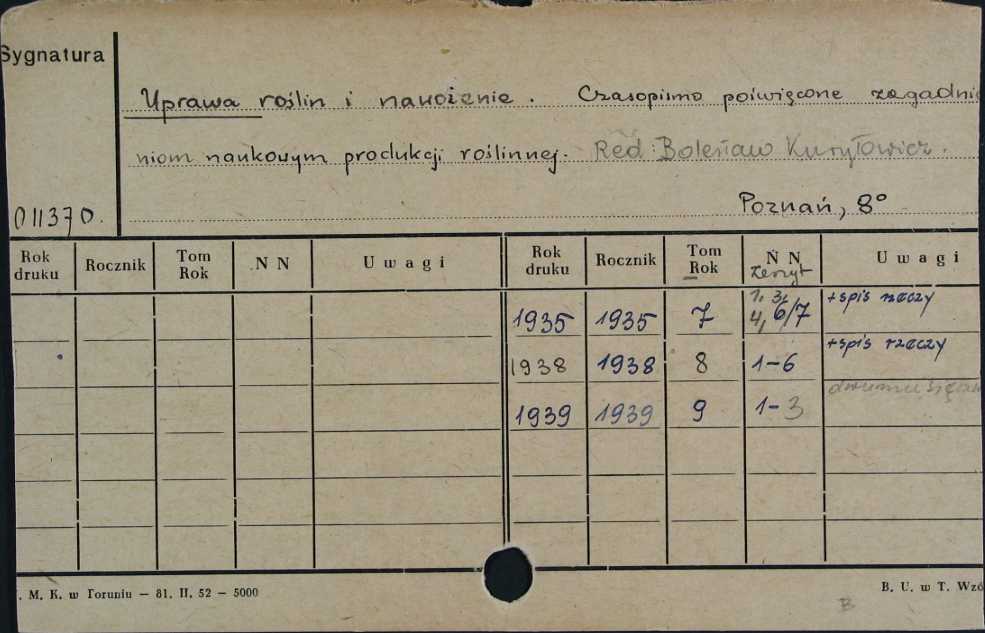 Sygnatura
Uprawa roślin i nawożenie. Czasopismo poświęcone zagadnie
niom naukowym produkcji roślinnej. Red. Bolesław Kuryłowicz.
011370.
Poznań, 8°
Rok druku Rocznik Tom Rok N N Uwagi Rok druku Rocznik Tom Rok N N Uwagi
zeszyt
1935 1935 7 1, 3, 4, 6/7 +spis rzeczy
1938 1938 8 1-6 +spis rzeczy
1939 1939 9 1-3
. M. K. w Toruniu — 81. II. 52 — 5000
B. U. w T. Wzó
B